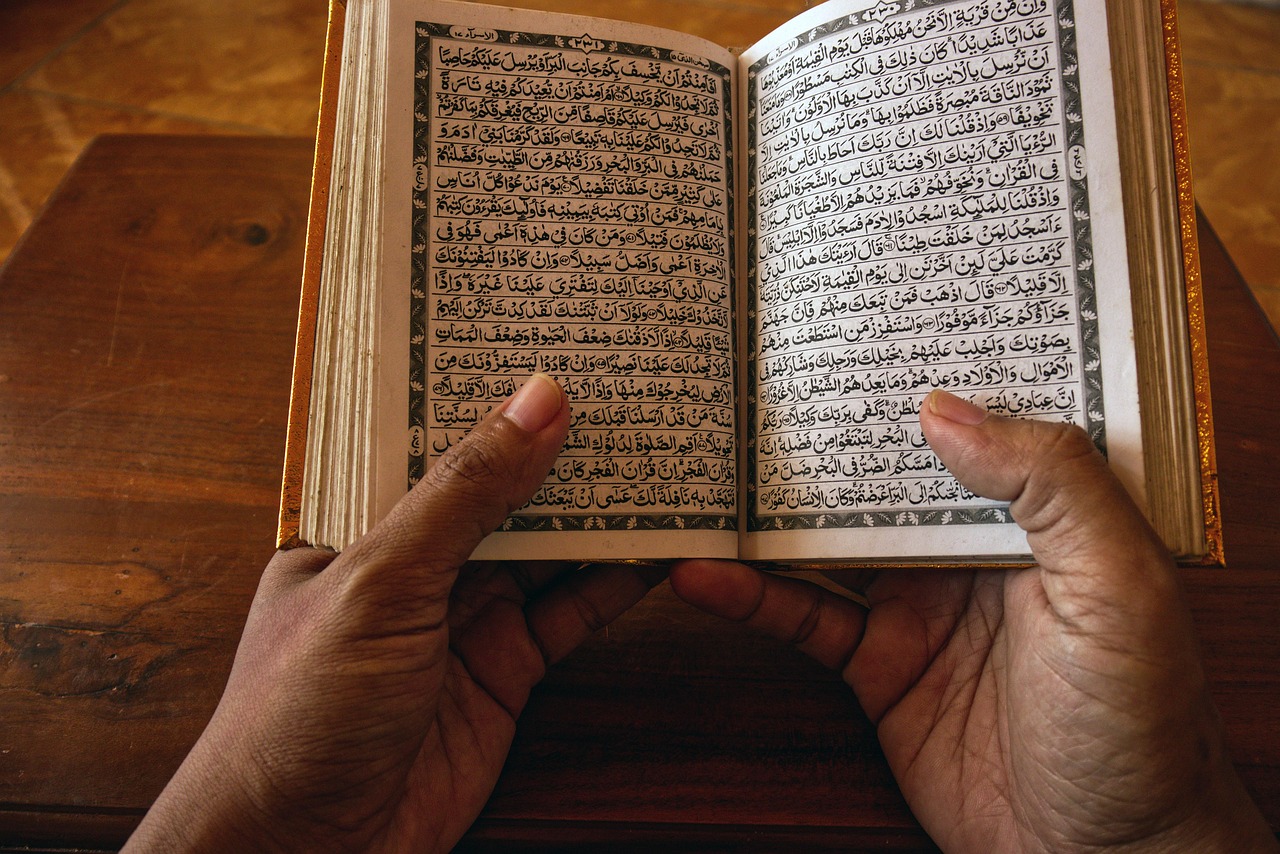 الاسرآء ١٧
٢٣٠
وَاِنْ مِّنْ قَرْيَةٍ اِلَّا نَحْنُ مُهْلِكُوْهَا قَبْلَ يَوْمِ الْقِيٰمَةِ اَوْ مُعَذِّبُوْهَا
عَذَابًا شَدِيْدًا كَانَ ذٰلِكَ فِى الْكِتٰبِ مَسْطُوْرًا ٥٨ وَمَا مَنَعَنَا
اَنْ نُّرْسِلَ بِالْاٰيٰتِ اِلَّا اَنْ كَذَّبَ بِهَا الْاَوَّلُوْنَ وَاٰتَيْنَا
ثَمُوْدَ النَّاقَةَ مُبْصِرَةً فَظَلَمُوْا بِهَا وَمَا نُرْسِلُ بِالْاٰيٰتِ اِلَّا
تَخْوِيْفًا ٥٩ وَاِذْ قُلْنَا لَكَ اِنَّ رَبَّكَ اَحَاطَ بِالنَّاسِ وَمَا جَعَلْنَا
الرُّءْيَا الَّتِيْ اَرَيْنٰكَ اِلَّا فِتْنَةً لِّلنَّاسِ وَالشَّجَرَةَ الْمَلْعُوْنَةَ
فِى الْقُرْاٰنِ وَنُخَوِّفُهُمْ فَمَا يَزِيْدُهُمْ اِلَّا طُغْيَانًا كَبِيْرًا ٦٠
وَاِذْ قُلْنَا لِلْمَلٰٓئِكَةِ اسْجُدُوْا لِاٰدَمَ فَسَجَدُوْا اِلَّا اِبْلِيْسَ قَالَ
ءَاَسْجُدُ لِمَنْ خَلَقْتَ طِيْنًا ٦١ قَالَ اَرَءَيْتَكَ هٰذَا الَّذِيْ
كَرَّمْتَ عَلَيَّ لَئِنْ اَخَّرْتَنِ اِلٰى يَوْمِ الْقِيٰمَةِ لَاَحْتَنِكَنَّ ذُرِّيَّتَهٗ
اِلَّا قَلِيْلًا ٦٢ قَالَ اذْهَبْ فَمَنْ تَبِعَكَ مِنْهُمْ فَاِنَّ جَهَنَّمَ
جَزَآؤُكُمْ جَزَآءً مَّوْفُوْرًا ٦٣ وَاسْتَفْزِزْ مَنِ اسْتَطَعْتَ مِنْهُمْ
بِصَوْتِكَ وَاَجْلِبْ عَلَيْهِمْ بِخَيْلِكَ وَرَجِلِكَ وَشَارِكْهُمْ فِى
الْاَمْوَالِ وَالْاَوْلَادِ وَعِدْهُمْ وَمَا يَعِدُهُمُ الشَّيْطٰنُ اِلَّا غُرُوْرًا ٦٤
اِنَّ عِبَادِيْ لَيْسَ سُلْطٰنٌ وَكَفٰى بِرَبِّكَ وَكِيْلًا ٦٥ رَبُّكُمُ
فِى الْبَحْرِ لِتَبْتَغُوْا مِنْ فَضْلِهٖ اِنَّهٗ
مَسَّكُمُ الضُّرُّ فِى الْبَحْرِ ضَلَّ مَنْ
نَجّٰىكُمْ اِلَى الْبَرِّ اَعْرَضْتُمْ وَكَانَ الْاِنْسَانُ كَفُوْرًا ٦٧
سبحن الذى ١٥
٢٣١
الاسرآء ١٧
اَفَاَمِنْتُمْ اَنْ يَّخْسِفَ بِكُمْ جَانِبَ الْبَرِّ اَوْ يُرْسِلَ عَلَيْكُمْ حَاصِبًا
ثُمَّ لَا تَجِدُوْا لَكُمْ وَكِيْلًا ٦٨ اَمْ اَمِنْتُمْ اَنْ يُّعِيْدَكُمْ فِيْهِ تَارَةً
اُخْرٰى فَيُرْسِلَ عَلَيْكُمْ قَاصِفًا مِّنَ الرِّيْحِ فَيُغْرِقَكُمْ بِمَا كَفَرْتُمْ
ثُمَّ لَا تَجِدُوْا لَكُمْ عَلَيْنَا بِهٖ تَبِيْعًا ٦٩ وَلَقَدْ كَرَّمْنَا بَنِيْٓ اٰدَمَ وَ
حَمَلْنٰهُمْ فِى الْبَرِّ وَالْبَحْرِ وَرَزَقْنٰهُمْ مِّنَ الطَّيِّبٰتِ وَفَضَّلْنٰهُمْ
عَلٰى كَثِيْرٍ مِّمَّنْ خَلَقْنَا تَفْضِيْلًا ٧٠ يَوْمَ نَدْعُوْا كُلَّ اُنَاسٍ
بِاِمَامِهِمْ فَمَنْ اُوْتِيَ كِتٰبَهٗ بِيَمِيْنِهٖ فَاُولٰٓئِكَ يَقْرَءُوْنَ كِتٰبَهُمْ
وَلَا يُظْلَمُوْنَ فَتِيْلًا ٧١ وَمَنْ كَانَ فِيْ هٰذِهٖٓ اَعْمٰى فَهُوَ فِى
الْاٰخِرَةِ اَعْمٰى وَاَضَلُّ سَبِيْلًا ٧٢ وَاِنْ كَادُوْا لَيَفْتِنُوْنَكَ
عَنِ الَّذِيْٓ اَوْحَيْنَآ اِلَيْكَ لِتَفْتَرِيَ عَلَيْنَا غَيْرَهٗ وَاِذًا
لَّاتَّخَذُوْكَ خَلِيْلًا ٧٣ وَلَوْلَآ اَنْ ثَبَّتْنٰكَ لَقَدْ كِدْتَّ تَرْكَنُ اِلَيْهِمْ
شَيْئًا قَلِيْلًا ٧٤ اِذًا لَّاَذَقْنٰكَ ضِعْفَ الْحَيٰوةِ وَضِعْفَ الْمَمَاتِ
ثُمَّ لَا تَجِدُ لَكَ عَلَيْنَا نَصِيْرًا ٧٥ وَاِنْ كَادُوْا لَيَسْتَفِزُّوْنَكَ مِنَ
الْاَرْضِ لِيُخْرِجُوْكَ مِنْهَا وَاِذًا خِلٰفَكَ اِلَّا قَلِيْلًا ٧٦
سُنَّةَ مَنْ قَدْ اَرْسَلْنَا قَبْلَكَ مِنْ لِسُنَّتِنَا
تَحْوِيْلًا ٧٧ اَقِمِ الصَّلٰوةَ لِدُلُوْكِ
وَقُرْاٰنَ الْفَجْرِ اِنَّ قُرْاٰنَ الْفَجْرِ كَانَ
فَتَهَجَّدْ بِهٖ نَافِلَةً لَّكَ عَسٰٓى اَنْ يَّبْعَثَكَ